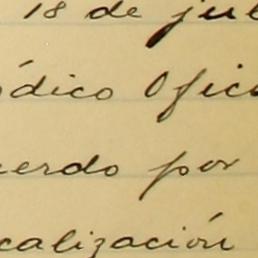 18 de jul
ódico Ofici
uerdo por
calización